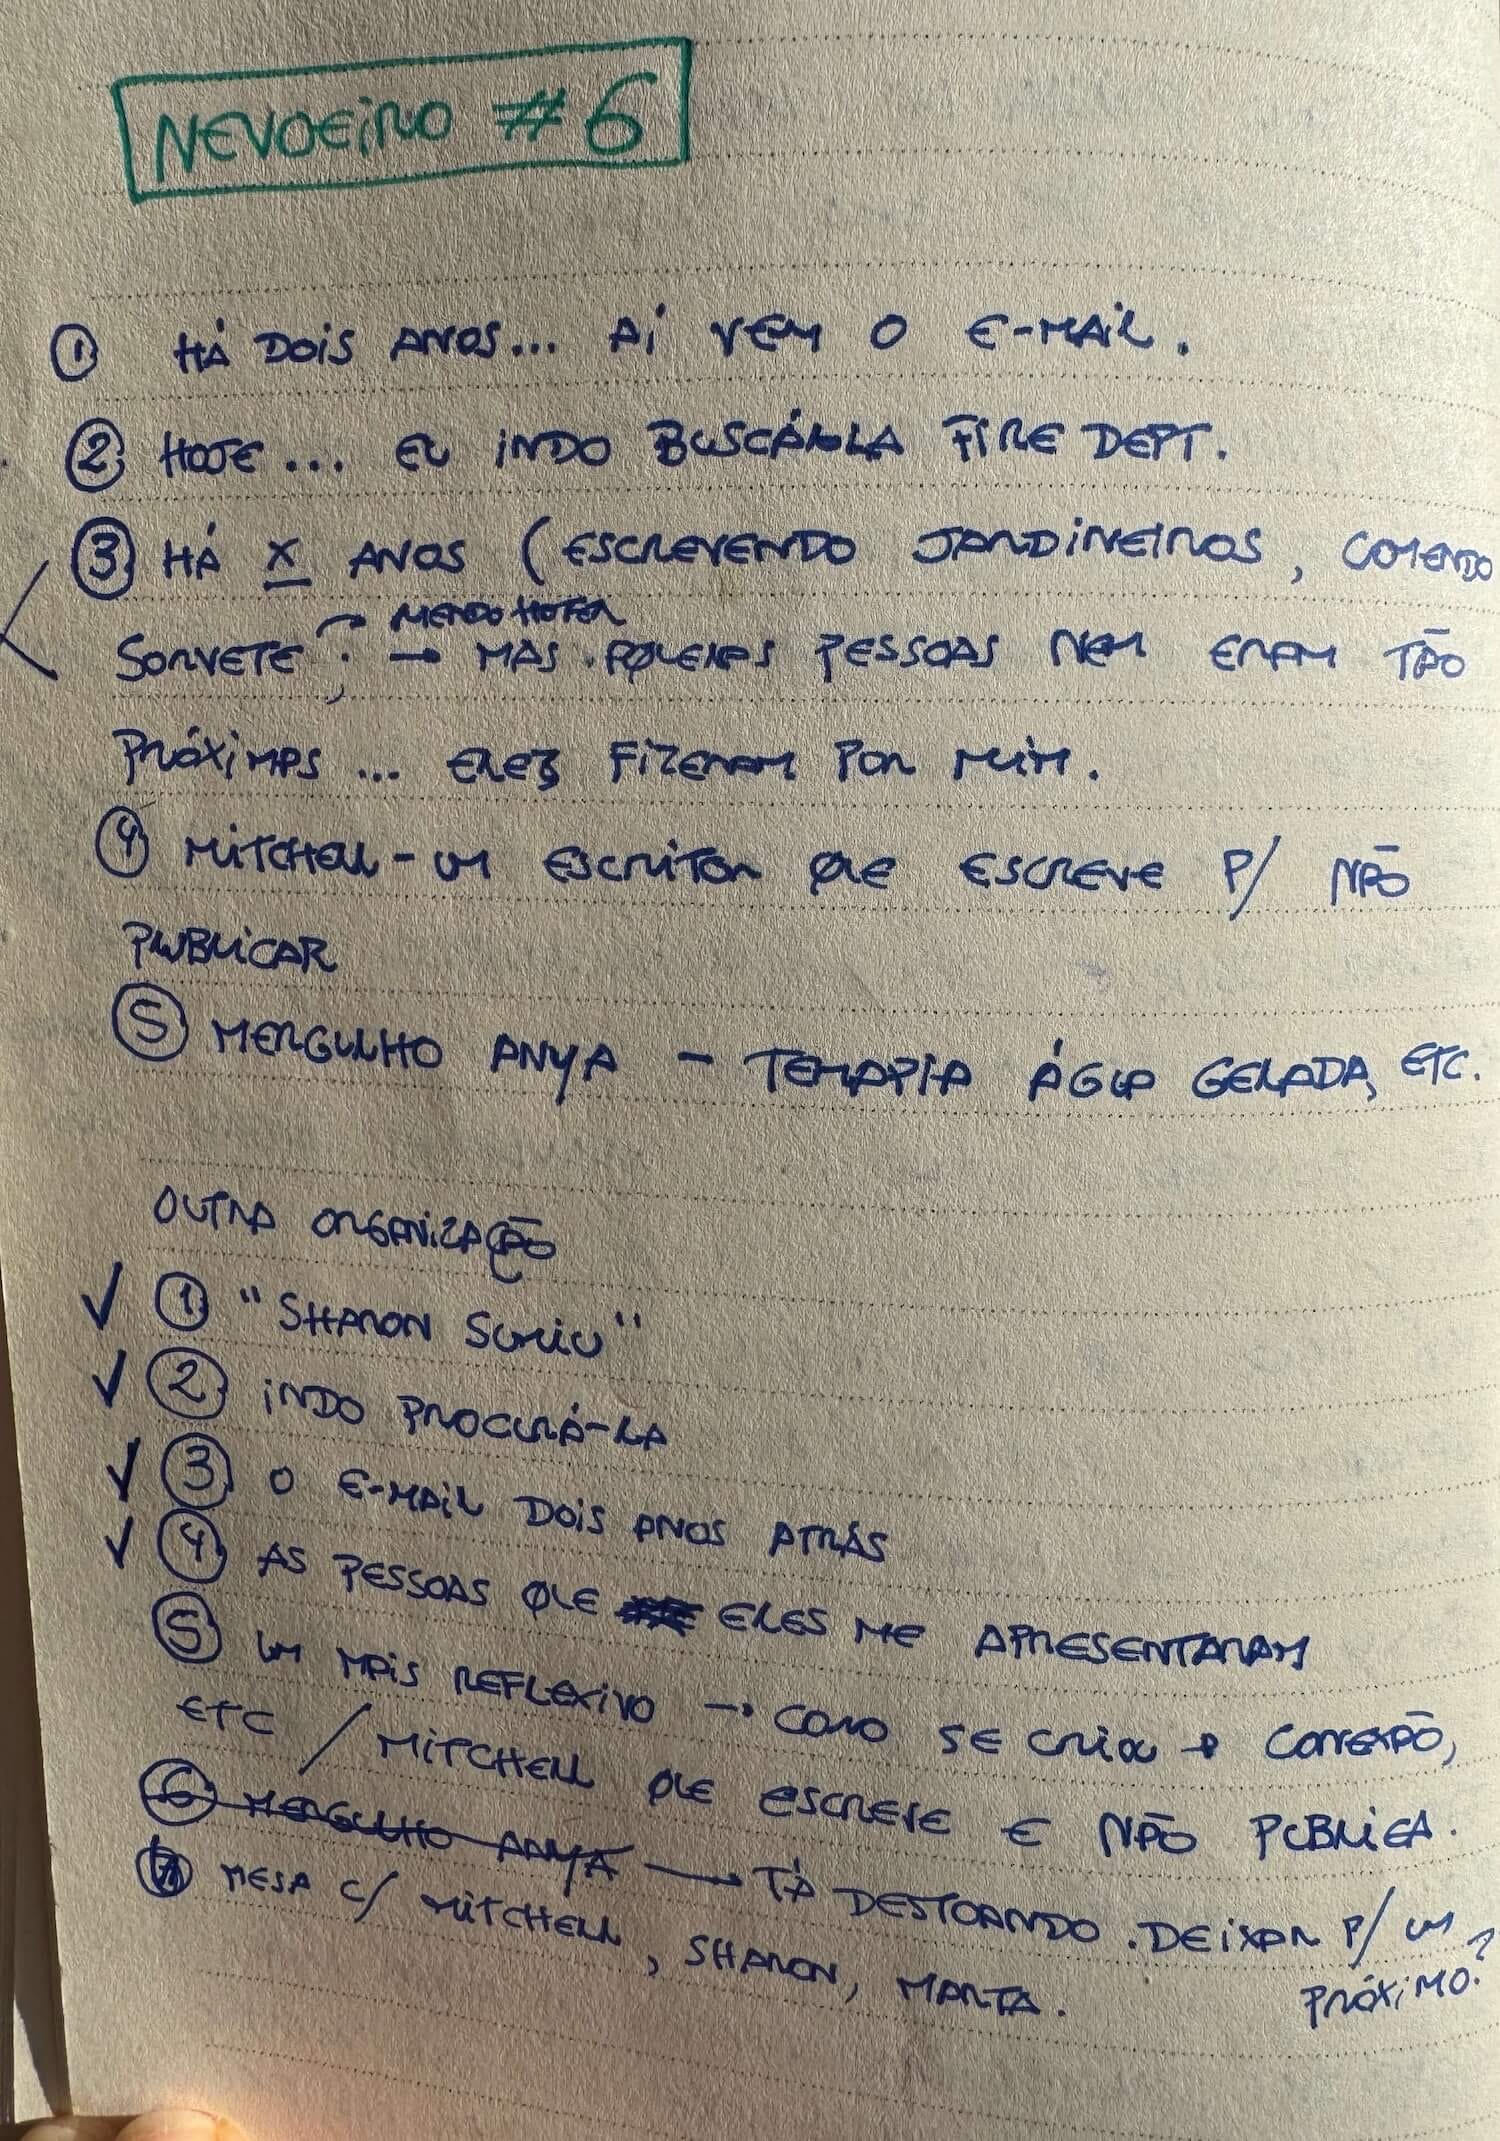 NEVOEIRO #6
① HÁ DOIS ANOS... AÍ VEM O E-MAIL.
② HOJE... EU INDO BUSCÁ-LA FIRE DEPT.
③ HÁ X ANOS (ESCREVENDO JARDINEIROS, COMENDO
MENDOHOFER
SORVETE; → MAS AQUELAS PESSOAS NEM ERAM TÃO
PRÓXIMAS... ELES FIZERAM POR MIM.
④ MITCHELL - UM ESCRITOR QUE ESCREVE P/ NÃO
PUBLICAR
⑤ MERGULHO ANYA - TERAPIA ÁGUA GELADA, ETC.
OUTRA ORGANIZAÇÃO
✓ ① "SHARON SUMIU"
✓ ② INDO PROCURÁ-LA
✓ ③ O E-MAIL DOIS ANOS ATRÁS
✓ ④ AS PESSOAS QUE ELES ME APRESENTARAM
⑤ UM MAIS REFLEXIVO → COMO SE CRIA A CONEXÃO,
ETC / MITCHELL QUE ESCREVE E NÃO PUBLICA.
⑥ MERGULHO ANYA → TÁ DESTOANDO. DEIXAR P/ UM
PRÓXIMO?
MESA C/ MITCHELL, SHARON, MARTA.